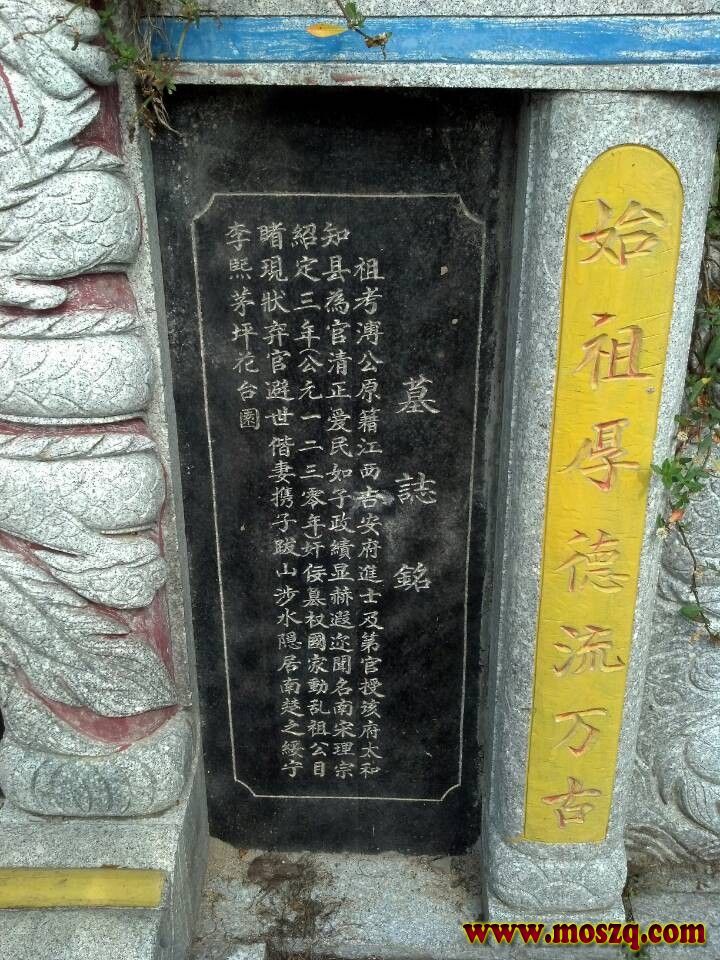 始祖厚德流万古
墓誌銘
祖考溥公原籍江西吉安府進士及第官授该府太和
知县為官清正爱民如子政績显赫遐迩聞名南宋理宗
紹定三年(公元一二三零年奸佞墓权國家動乱祖公目
睹現狀弃官避世偕妻携子跋山涉水隠居南楚之绥宁
李熙茅坪花台園
www.moszq.com